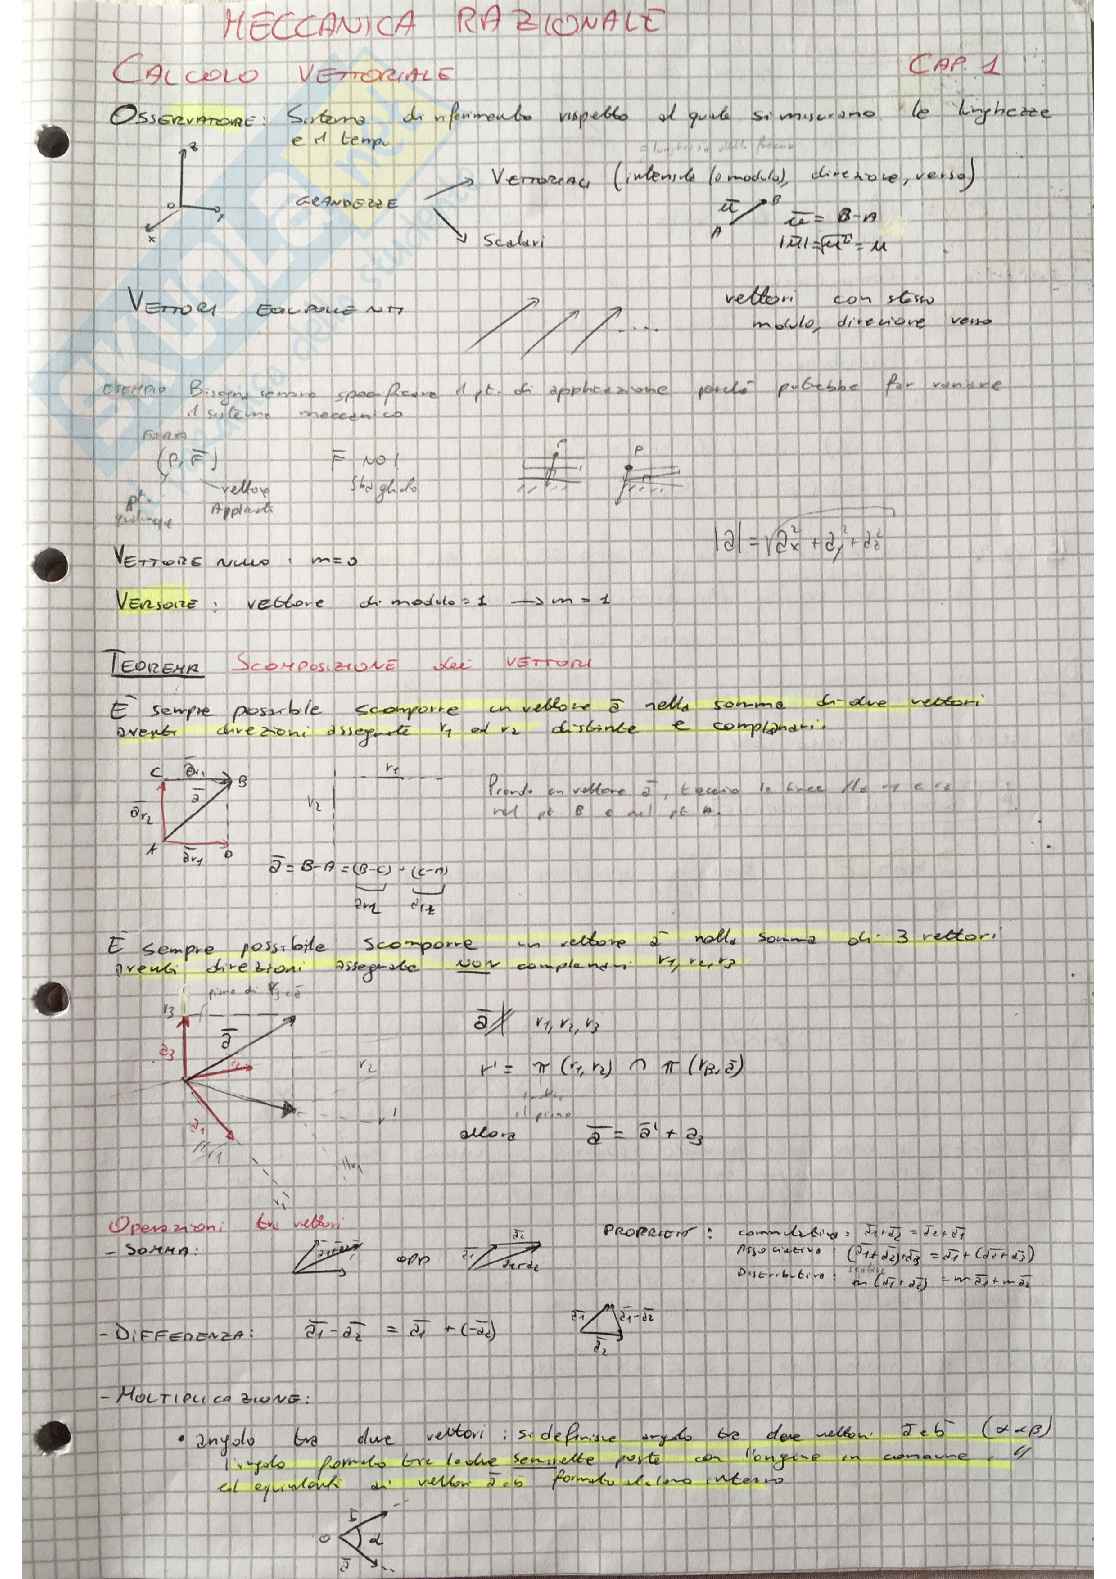 MECCANICA RAZIONALE
CALCOLO VETTORIALE CAP. 1
OSSERVATORE: Sistema di riferimento rispetto al quale si misurano le lunghezze
e il tempo
z
o y
x
GRANDEZZE
VETTORIALI (intensità (o modulo), direzione, verso)
Scalari
ū B
A
ū = B-A
|ū| = √u² = u
VETTORI EQUIPOLLENTI
vettori con stesso
modulo, direzione verso
ESEMPIO Bisogna sempre specificare il pt. di applicazione perché potrebbe far variare
il sistema meccanico
FORZA
(P, F̄) F̄ NO!
vettore
Applicato
Sbagliato
pt.
P
|a| = √ax² + ay² + az²
VETTORE NULLO : m=0
VERSORE: vettore di modulo = 1 → m = 1
TEOREMA SCOMPOSIZIONE dei VETTORI
È sempre possibile scomporre un vettore ā nella somma di due vettori
aventi direzioni assegnate r1 ed r2 distinte e complanari.
C ār1 B
ā
ār2
A ār1 D
r1
r2
Prendo un vettore ā, traccio le linee // a r1 e r2
nel pt B e nel pt A.
ā = B-A = (B-C) + (C-A)
È sempre possibile scomporre un vettore ā nella somma di 3 vettori
aventi direzioni assegnate NON complanari r1, r2, r3
piano di r3 e ā
r3
ā
a3
r2
r'
a1
//r1
r1
ā ∦ r1, r2, r3
r' = π (r1, r2) ∩ π (r3, ā)
il piano
allora ā = ā' + a3
Operazioni tra vettori
- SOMMA: opp
PROPRIETÀ: commutativa: ā1+ā2 = ā2+ā1
Associativa: (ā1+ā2)+ā3 = ā1+(ā2+ā3)
Distributiva: m(ā1+ā2) = mā1+mā2
- DIFFERENZA: ā1-ā2 = ā1 + (-ā2)
ā1 ā1-ā2
ā2
- MOLTIPLICAZIONE:
• angolo tra due vettori: si definisce angolo tra due vettori ā e b̄ (α<β)
l'angolo formato tra le due semirette poste con l'origine in comune
ed equivalenti ai vettori ā e b̄ formato al loro interno
b̄
O α
ā